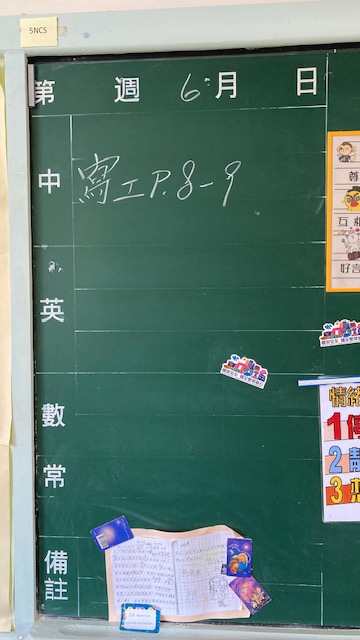 SNCS
第 週 6 月 日
中 寫工P.8-9
英
數
常
備註
尊
互
好言
情緒
1停
2
3想